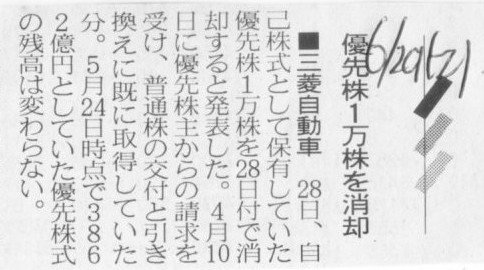 6/29(土)
優先株1万株を消却
■三菱自動車　28日、自
己株式として保有していた
優先株1万株を28日付で消
却すると発表した。4月10
日に優先株主からの請求を
受け、普通株の交付と引き
換えに既に取得していた
分。5月24日時点で386
2億円としていた優先株式
の残高は変わらない。